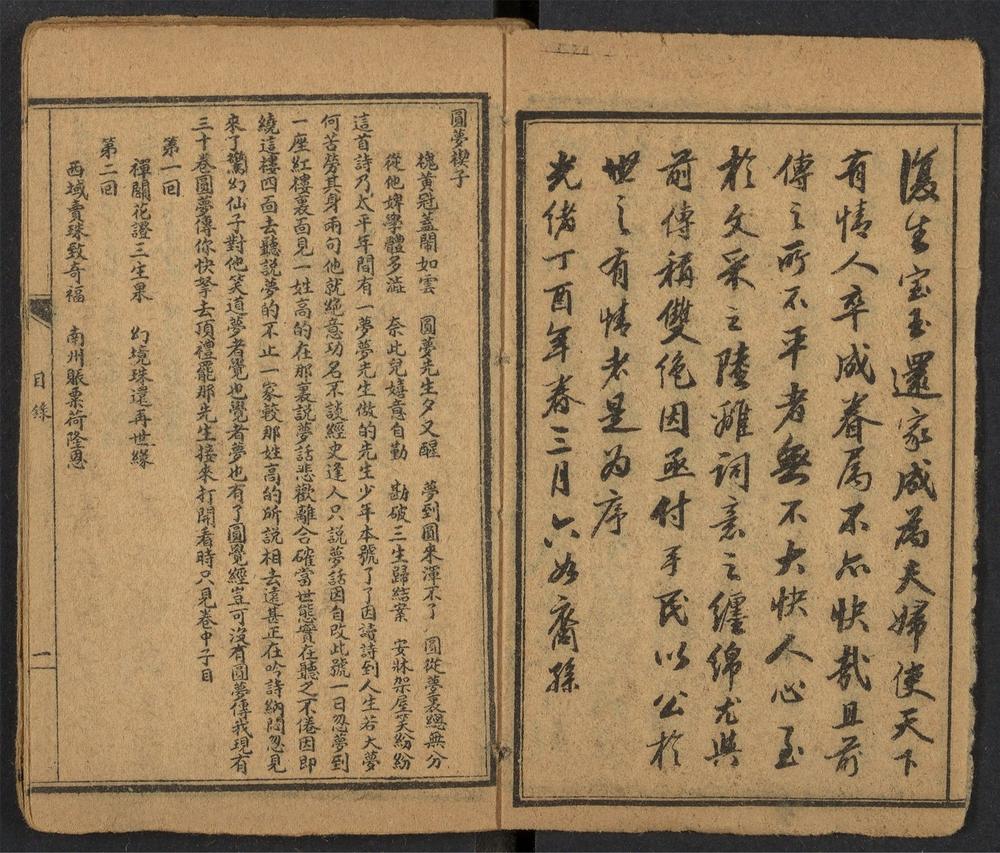 復生寶玉還家成為夫婦使天下
有情人卒成眷属不亦快哉且前
傳之所不平者無不大快人心至
於文采之陸離詞意之纏綿尤與
前傳稱雙絶因亟付手民以公於
世之有情者是为序
光緒丁酉年春三月六如裔孫
圓夢楔子
槐黃冠蓋鬧如雲 圓夢先生夕又醒 夢到圓來渾不了 圓從夢裏總無分
從他婢學體多澁 奈此兒嬉意自勤 勘破三生歸結案 安牀架屋笑紛紛
這首詩乃太平年間有一夢夢先生做的先生少年本號了了因讀詩到人生若大夢
何苦勞其身兩句他就絶意功名不談經史逢人只說夢話因自改此號一日忽夢到
一座紅樓裏面見一姓高的在那裏說夢話悲歡離合確當世態實在聽之不倦因即
繞這樓四面去聽說夢的不止一家較那姓高的所說相去遠甚正在吟詩納悶忽見
來了驚幻仙子對他笑道夢者覺也覺者夢也有了圓覺經豈可沒有圓夢傳我現有
三十卷圓夢傳你快拏去頂禮罷那先生接來打開看時只見卷中子目
第一回
禪關花證三生果 幻境珠還再世緣
第二回
西域賣珠致奇福 南州賑粟荷隆恩
目錄
一